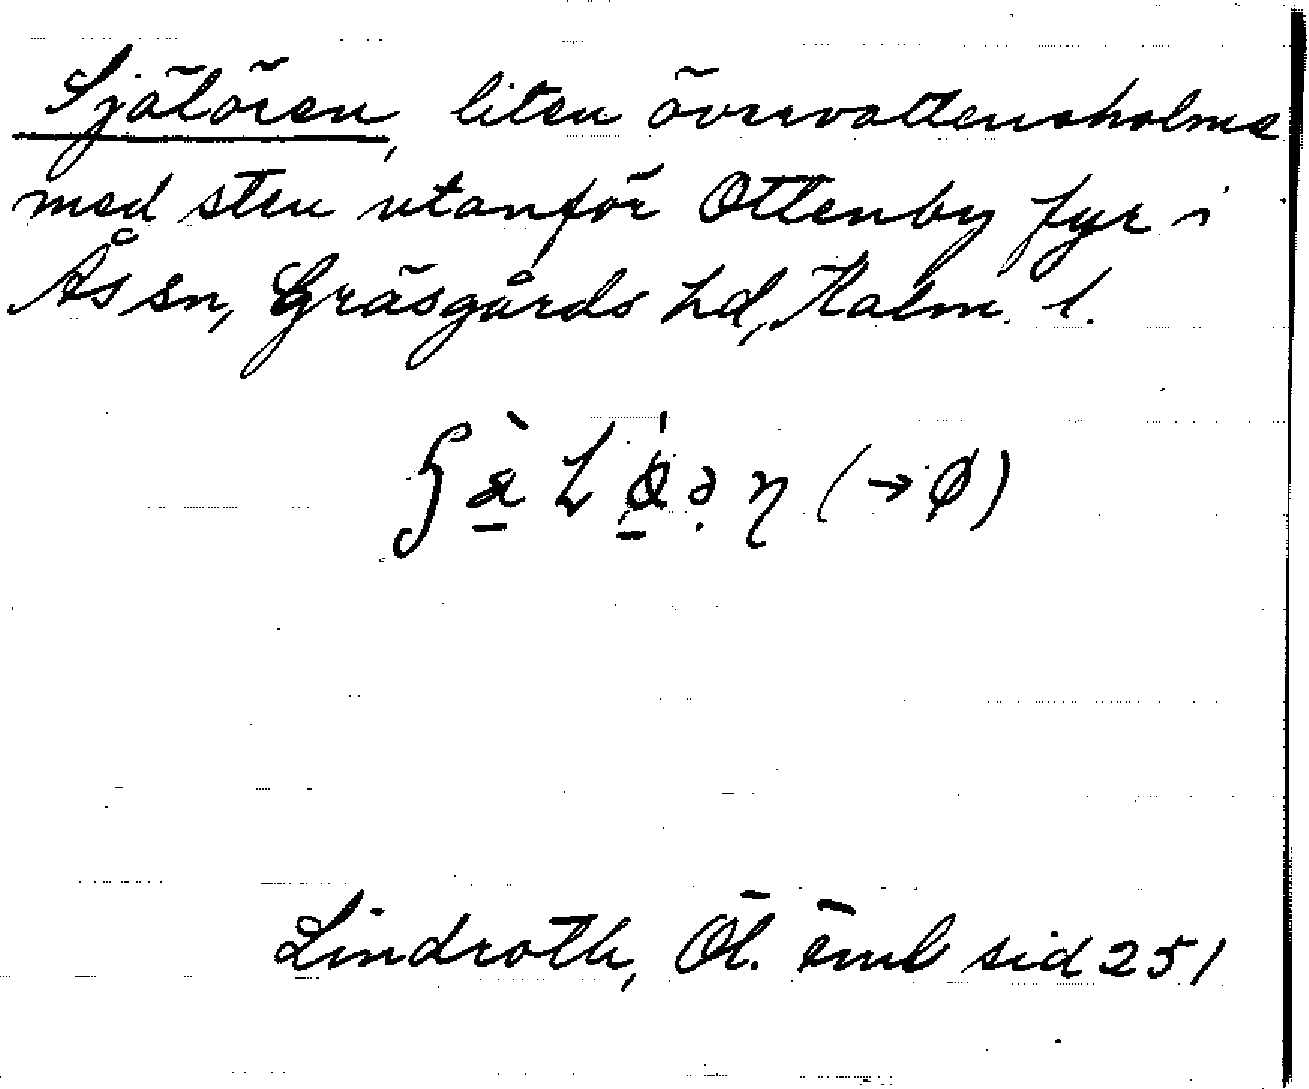 Själören, liten övervattensholme
med sten utanför Ottenby fyr i
Ås sn, Gräsgårds hd, Kalm. l.
(→ ø)
Lindroth, Öl. önl sid 251